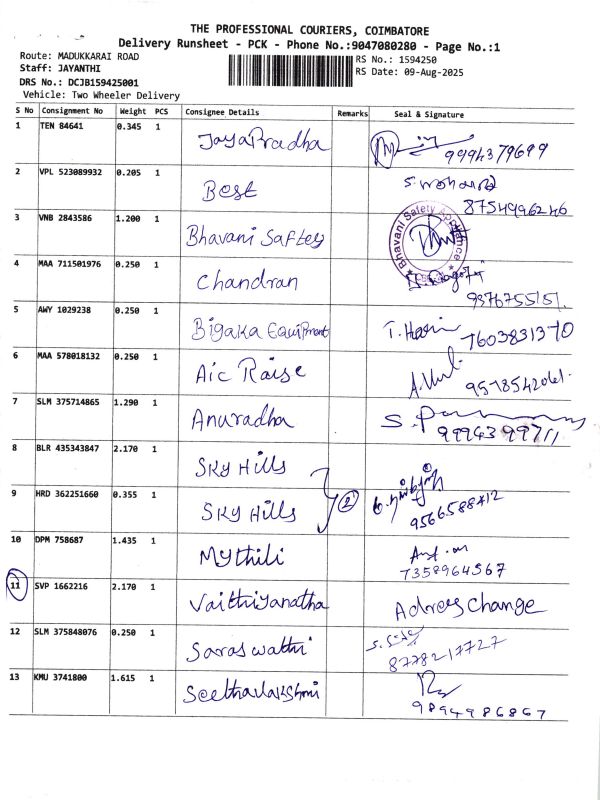 THE PROFESSIONAL COURIERS, COIMBATORE
Delivery Runsheet - PCK - Phone No.:9047080280 - Page No.:1
Route: MADUKKARAI ROAD
Staff: JAYANTHI
DRS No.: DCJB159425001
Vehicle: Two Wheeler Delivery
RS No.: 1594250
RS Date: 09-Aug-2025
S No Consignment No Weight PCS Consignee Details Remarks Seal & Signature
1 TEN 84641 0.345 1 JayaPradha 9994379699
2 VPL 523089932 0.205 1 Best 8754996246
3 VNB 2843586 1.200 1 Bhavani Saftey Bhavani Safety Appliance
4 MAA 711501976 0.250 1 Chandran
5 AWY 1029238 0.250 1 Bigaka EquiPment T. Hari 7603831370
6 MAA 578018132 0.250 1 Aic Raise 9578542061.
7 SLM 375714865 1.290 1 Anuradha
8 BLR 435343847 2.170 1 SKY Hills
9 HRD 362251660 0.355 1 SKY Hills 2 9566588412
10 DPM 758687 1.435 1 Mythili 7358964567
11 SVP 1662216 2.170 1 Vaithiyanatha Adrres Change
12 SLM 375848076 0.250 1 Saraswathi 8778217727
13 KMU 3741800 1.615 1 Seethalakshmi 9894986867